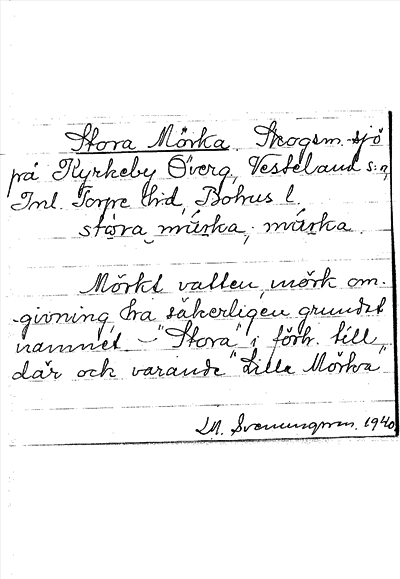 Stora Mörka. Skogsm.-sjö
på Kyrkeby Överg, Vesteland s:n,
Inl. Torpe hd, Bohus l.
stora mɑ́rka, mɑ́rka.
Mörkt vatten, mörk om-
-givning, ha säkerligen grundat
namnet. — "Stora" i förh. till
där och varande "Lilla Mörka"
Svenungsson. 1940.